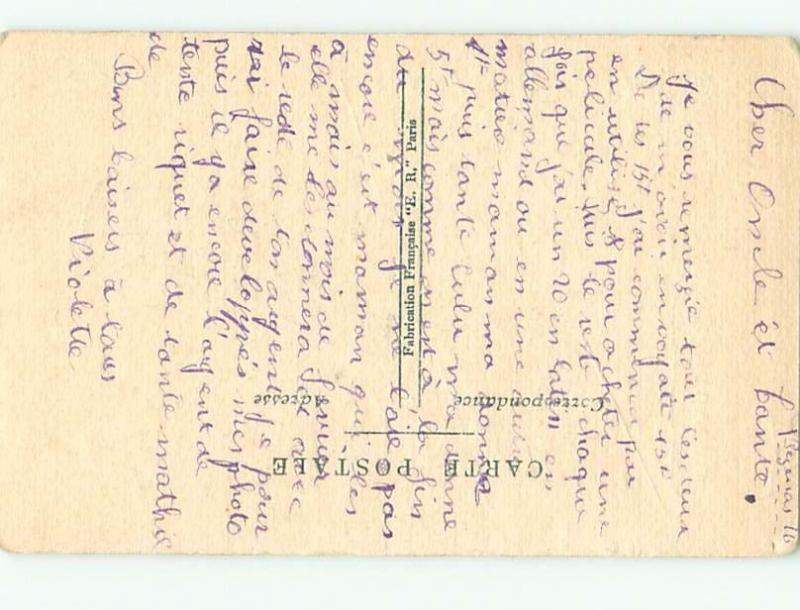 Cher Oncle et tante,
Je vous remercie tous les deux
de m'avoir envoyait 15F
De ces 15F j'ai commencé par
en utilisé 8 pour acheter une
pelicule. Puis le reste chaque
fois que j'ai un 20 en latin en
allemand ou en une autre
matière maman ma donne
1F puis tante Lulu ma donne
5F mais comme on est à la fin
du je ne l'aie pas
encore c'est maman qui les
à mais au mois de
elle me les donnera Et avec
le reste de ton argent je pour
rai faire developpés mes photo
puis il y a encore l'argent de
tante riquet et de tante mathil
de
Bons baisers à tous
Violette
CARTE POSTALE
Correspondance
Adresse
Fabrication Française "E. R." Paris